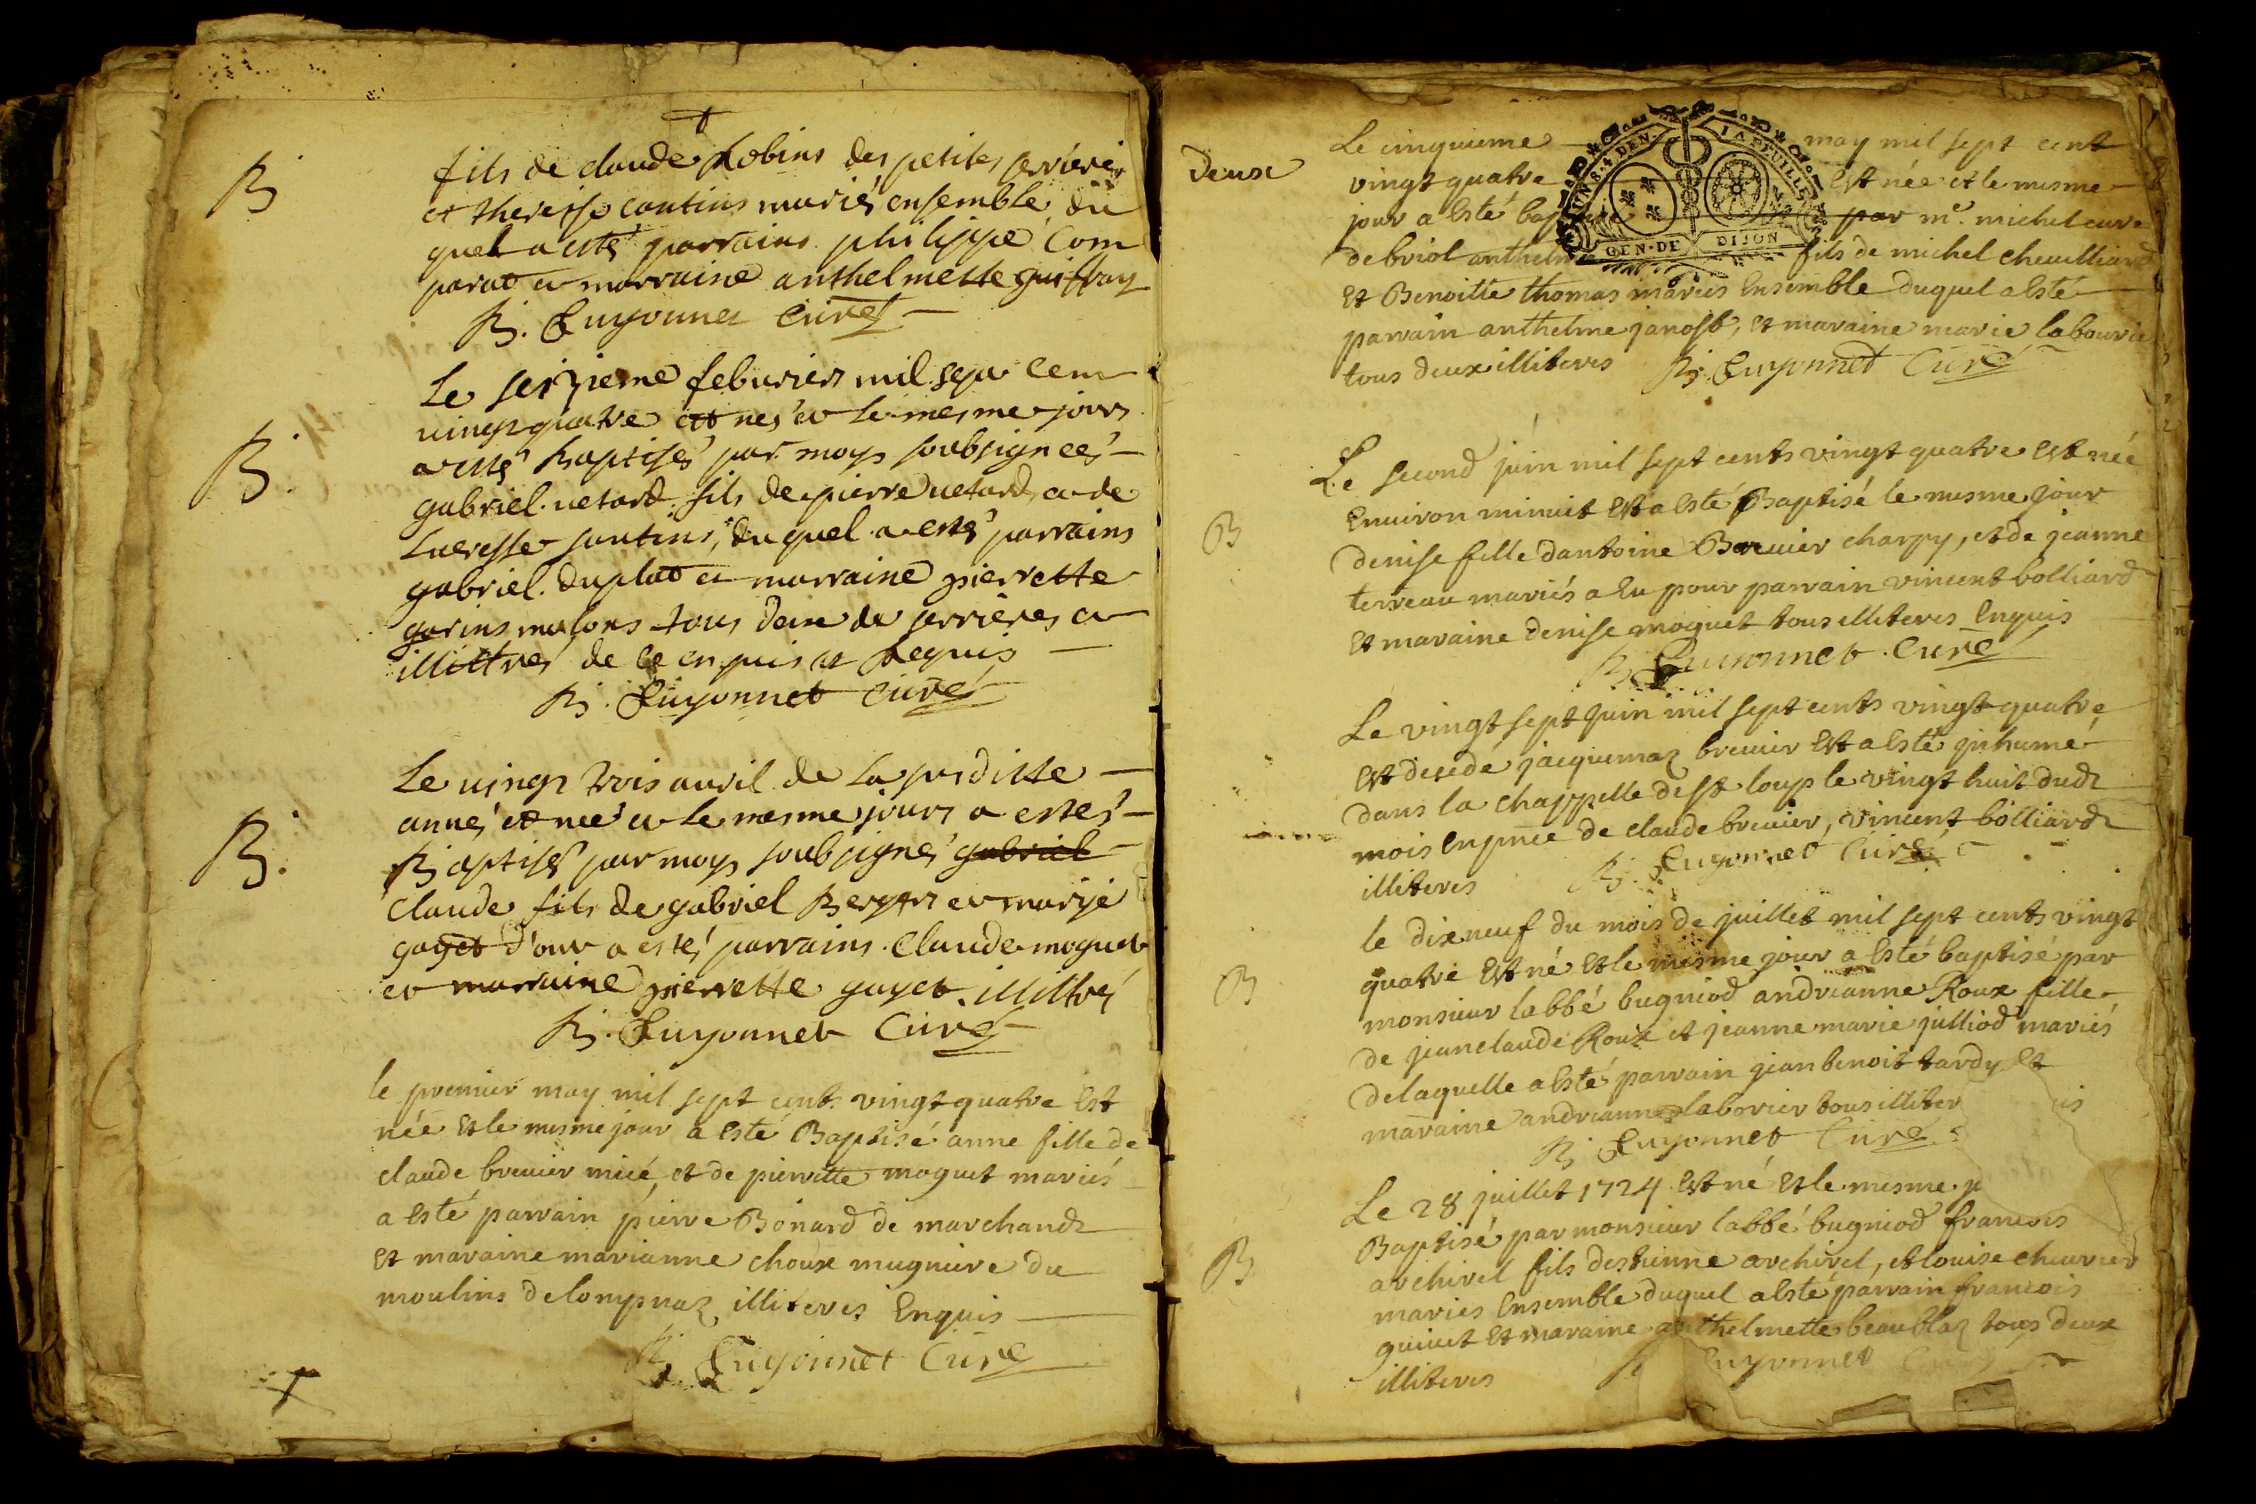 B
fils de claude Robins des petites serrieres
et theresse coutins mariés ensemble du
quel a estés parrains philippe Com
parat et marraine anthelmette guiffray
B. Cuyonnet Curé
B.
Le seizieme feburier mil sept cent
vingt quatre est nes et le mesme jours
a estés baptisés par moys soubsignees
gabriel netard fils de pierre netard et de
Lucresse soutins, du quel a estés parrains
gabriel duplat et marraine pierrette
garins malons tous deux de serrieres et
illittres de ce enquis et requis
B. Cuyonnet Curé
B.
Le vingt trois auril de la susditte
annés est né et le mesme jours a estés
Baptisés par moys soubsignés gabriel
Claude fils de gabriel Berger et marie
gayet d'ont a estés parrains Claude moguet
et marraine pierrette gayet illittrés
B. Cuyonnet Curé
le premier may mil sept cents vingt quatre est
née et le mesme jour a esté Baptisé anne fille de
claude breuier micé, et de pierrette moguet mariés
a esté parrain pierre Bonard de marchand
et maraine marianne choux mugniere du
moulins de lompnaz illiteres enquis
B. Cuyonnet Curé
Deux
Le cinquieme may mil sept cent
vingt quatre est née et le mesme
jour a esté par me. michel cure
de briol anthelme fils de michel cheuilliard
et Benoitte thomas mariés ensemble duquel a esté
parrain anthelme janost, et maraine marie labourie
tous deux illiteres B. Cuyonnet Curé
UN S. 4 DEN. LA FEUILLE
GEN. DE DIJON
B
Le second juin mil sept cents vingt quatre est née
enuiron minuit est a esté Baptisé le mesme jour
denise fille dantoine Breuier charpy, et de jeanne
terreau mariés a eu pour parrain vincent bolliard
et maraine denise moguet tous illiteres enquis
B Cuyonnet Curé
Le vingt sept juin mil sept cents vingt quatre
est decedé jacquemaz breuier est a esté inhumé
dans la chappelle de st loup le vingt huit dud
mois en pnce de claude breuier, vincent bolliard
illiteres B. Cuyonnet Curé
B
le dixneuf du mois de juillet mil sept cents vingt
quatre est né et le mesme jour a esté baptisé par
monsieur labbé bugniod andrianne Roux fille
de jeanclaude Roux et jeanne marie julliod mariés
delaquelle a esté parrain jean benoit tardy et
maraine andrianne laborier tous illiter is
B Cuyonnet Curé
B
Le 28 juillet 1724 est né et le mesme j
Baptisé par monsieur labbé bugniod francois
archirel fils destienne archirel, et louise cheurier
mariés ensemble duquel a esté parrain francois
guiuet et maraine anthelmette beaublaz tous deux
illiteres B Cuyonnet